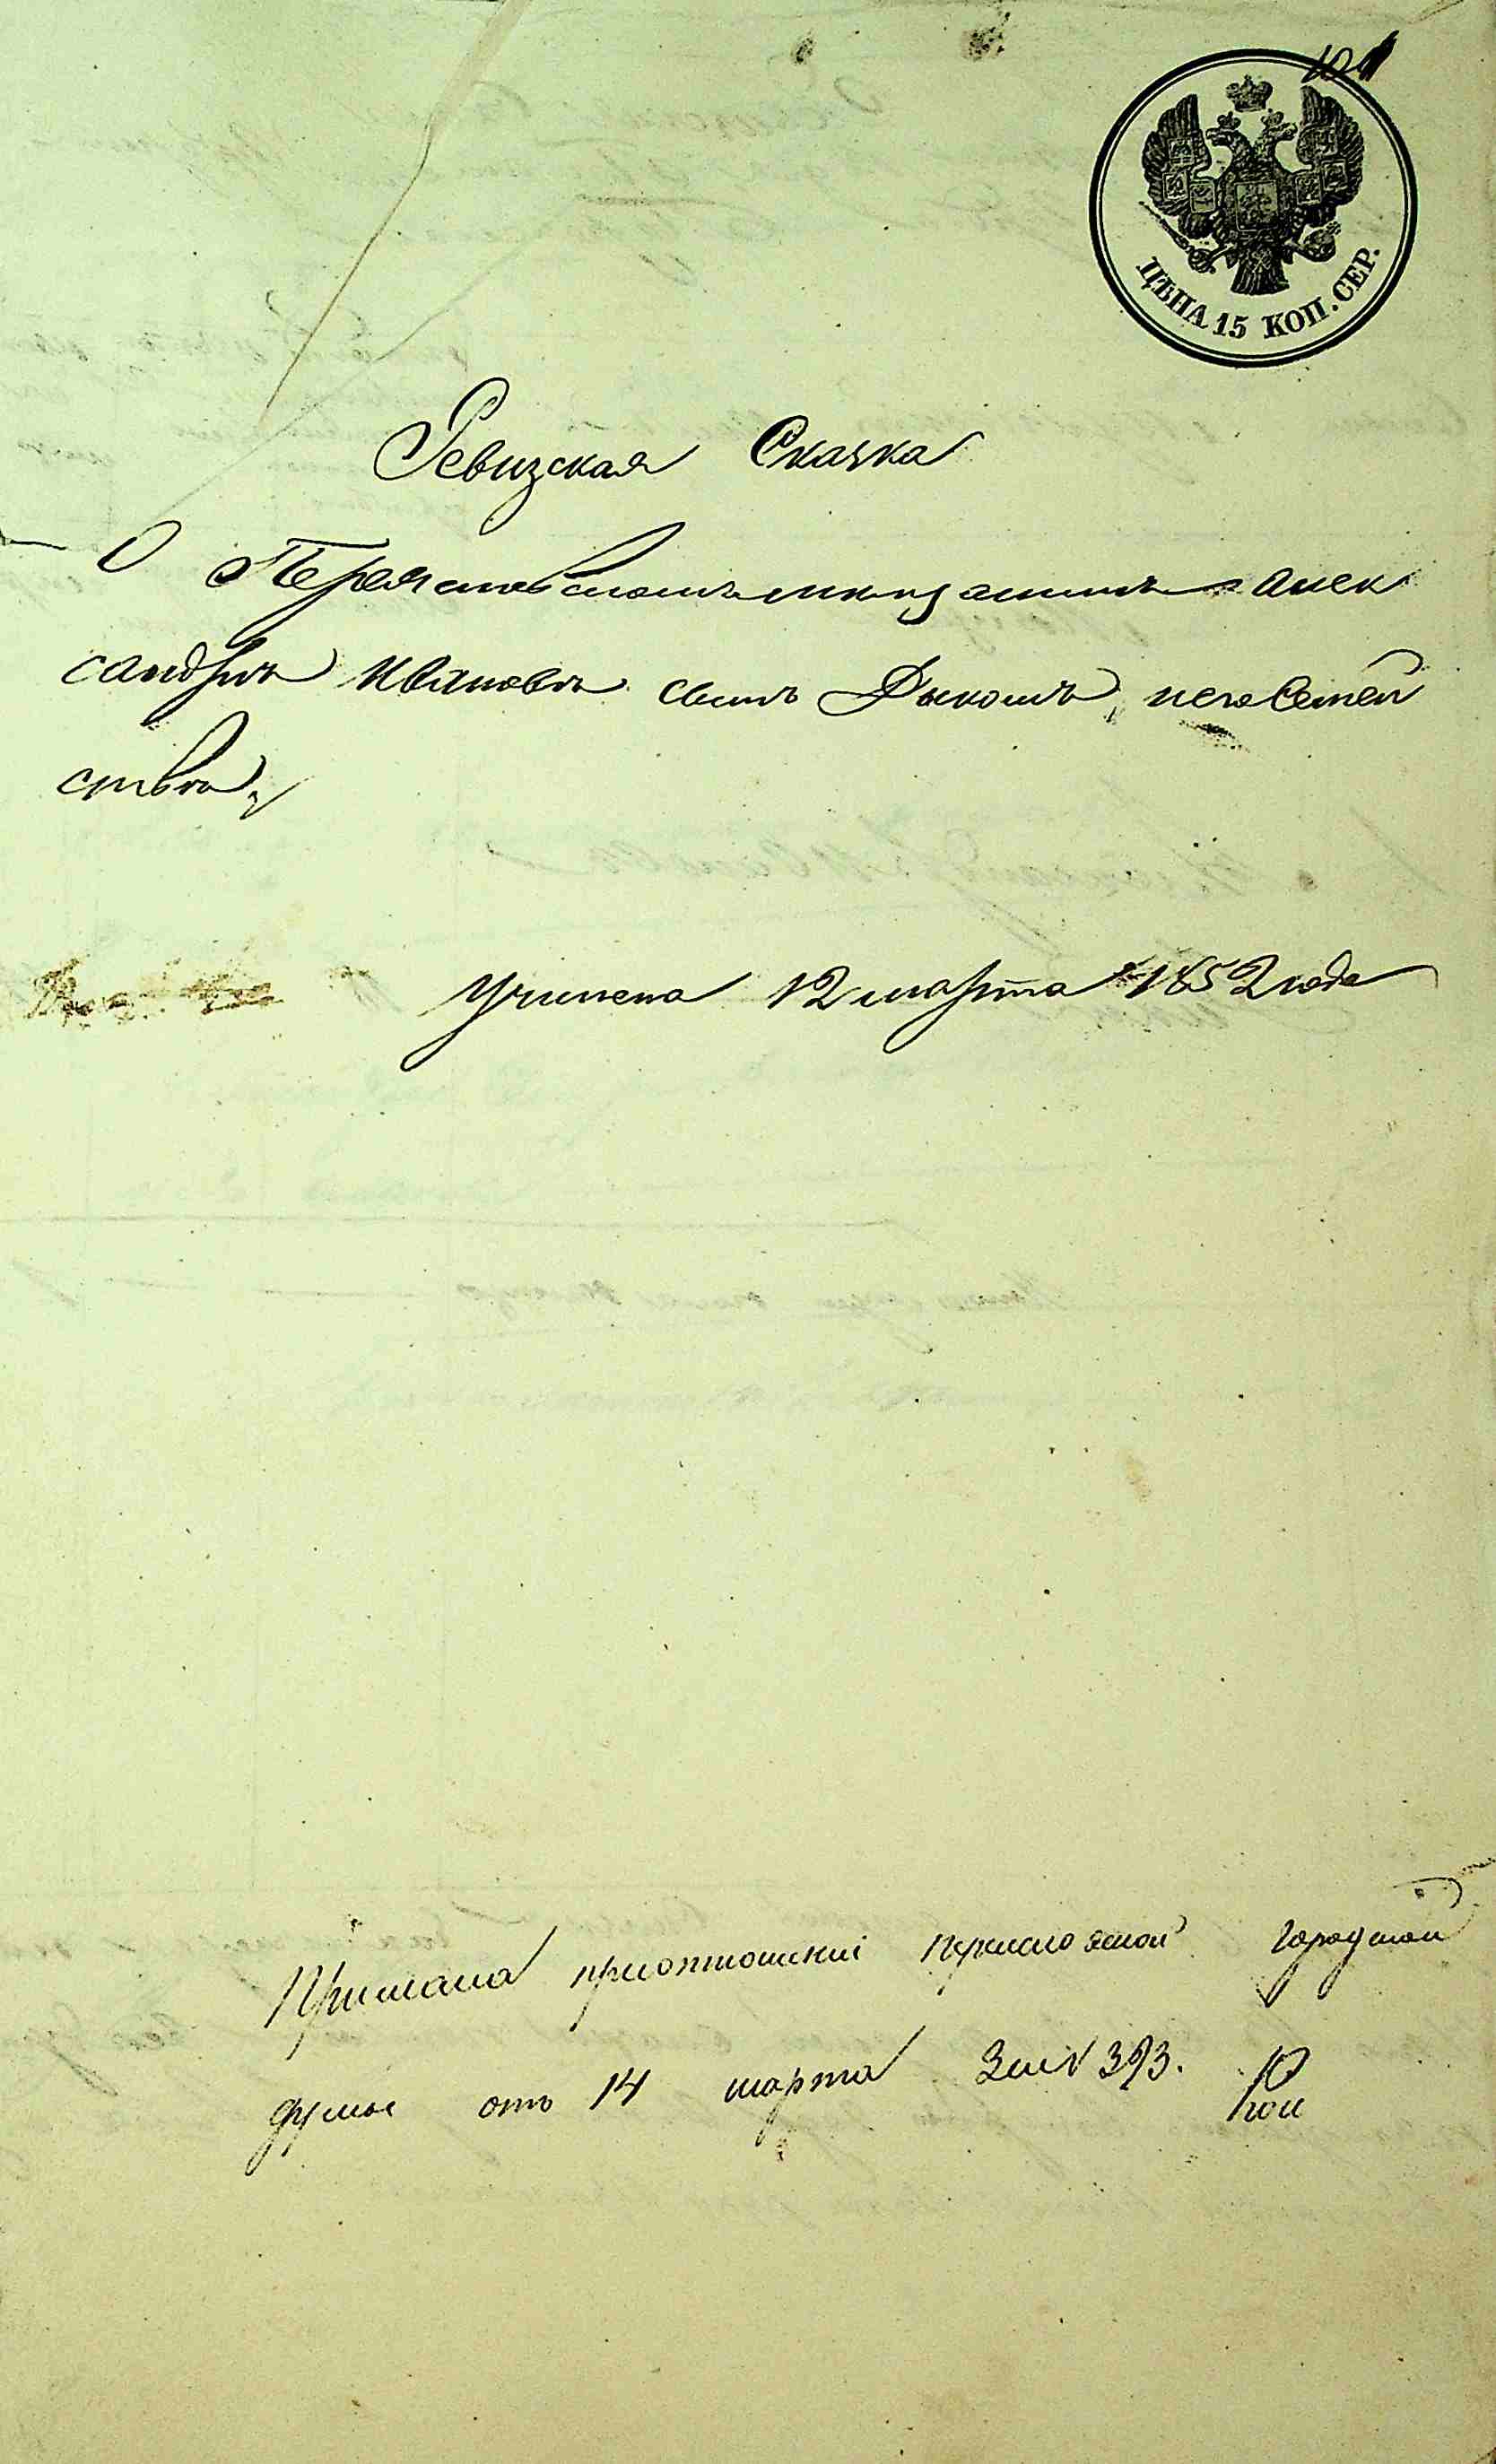 101
ЦѢНА 15 КОП. СЕР.
Ревизская Сказка
О Переяславскомъ мещанинѣ Алек
сандрѣ Ивановѣ сынѣ Дыкомъ, иего Семей
ства,
Учинена 12 марта 1852 года
Прислана приотношеніи Переяславской Городской
думы отъ 14 марта За № 393.